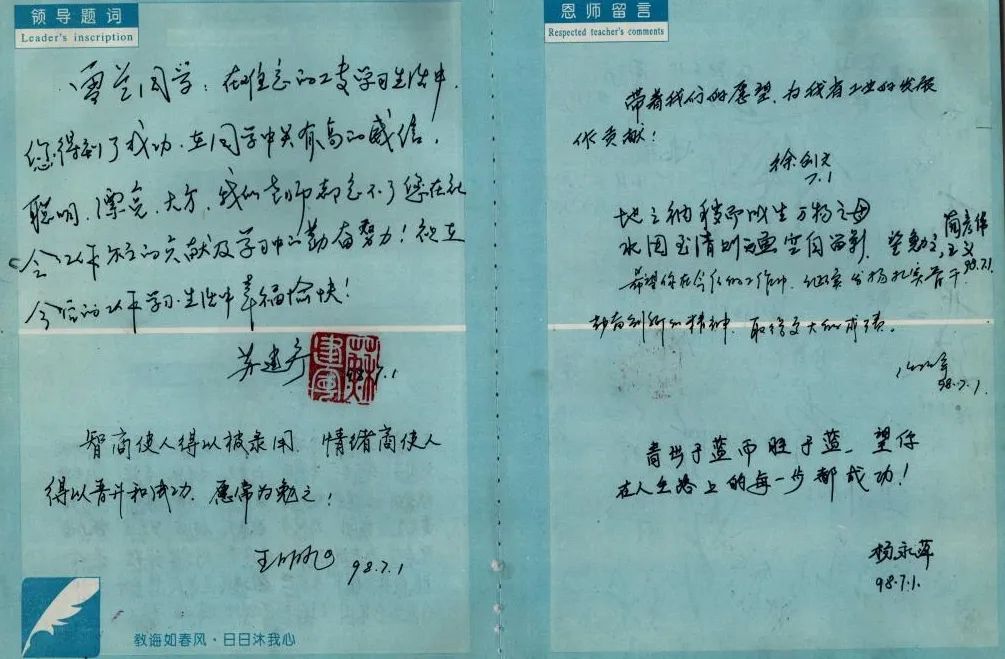 领导题词
Leader's inscription
雪兰同学：在难忘的工专学习生活中，
您得到了成功，在同学中具有高的威信。
聪明、漂亮、大方，我们老师都忘不了您在社
会工作方面的贡献及学习中的勤奋努力！祝在
今后的工作学习生活中幸福愉快！
苏建宁 98.7.1
智商使人得以被录用，情绪商使人
得以晋升和成功，愿常为勉之！
98.7.1
教诲如春风·日日沐我心
恩师留言
Respected teacher's comments
带着我们的愿望，为我省工业的发展
作贡献！
徐剑
7.1
地之秽即以生万物之母
水因至清则空自留影
98.7.1
希望你在今后的工作中，继续发扬扎实苦干
勤奋创新的精神，取得更大的成绩。
98.7.1
青出于蓝而胜于蓝，望你
在人生路上的每一步都成功！
杨永萍
98.7.1.